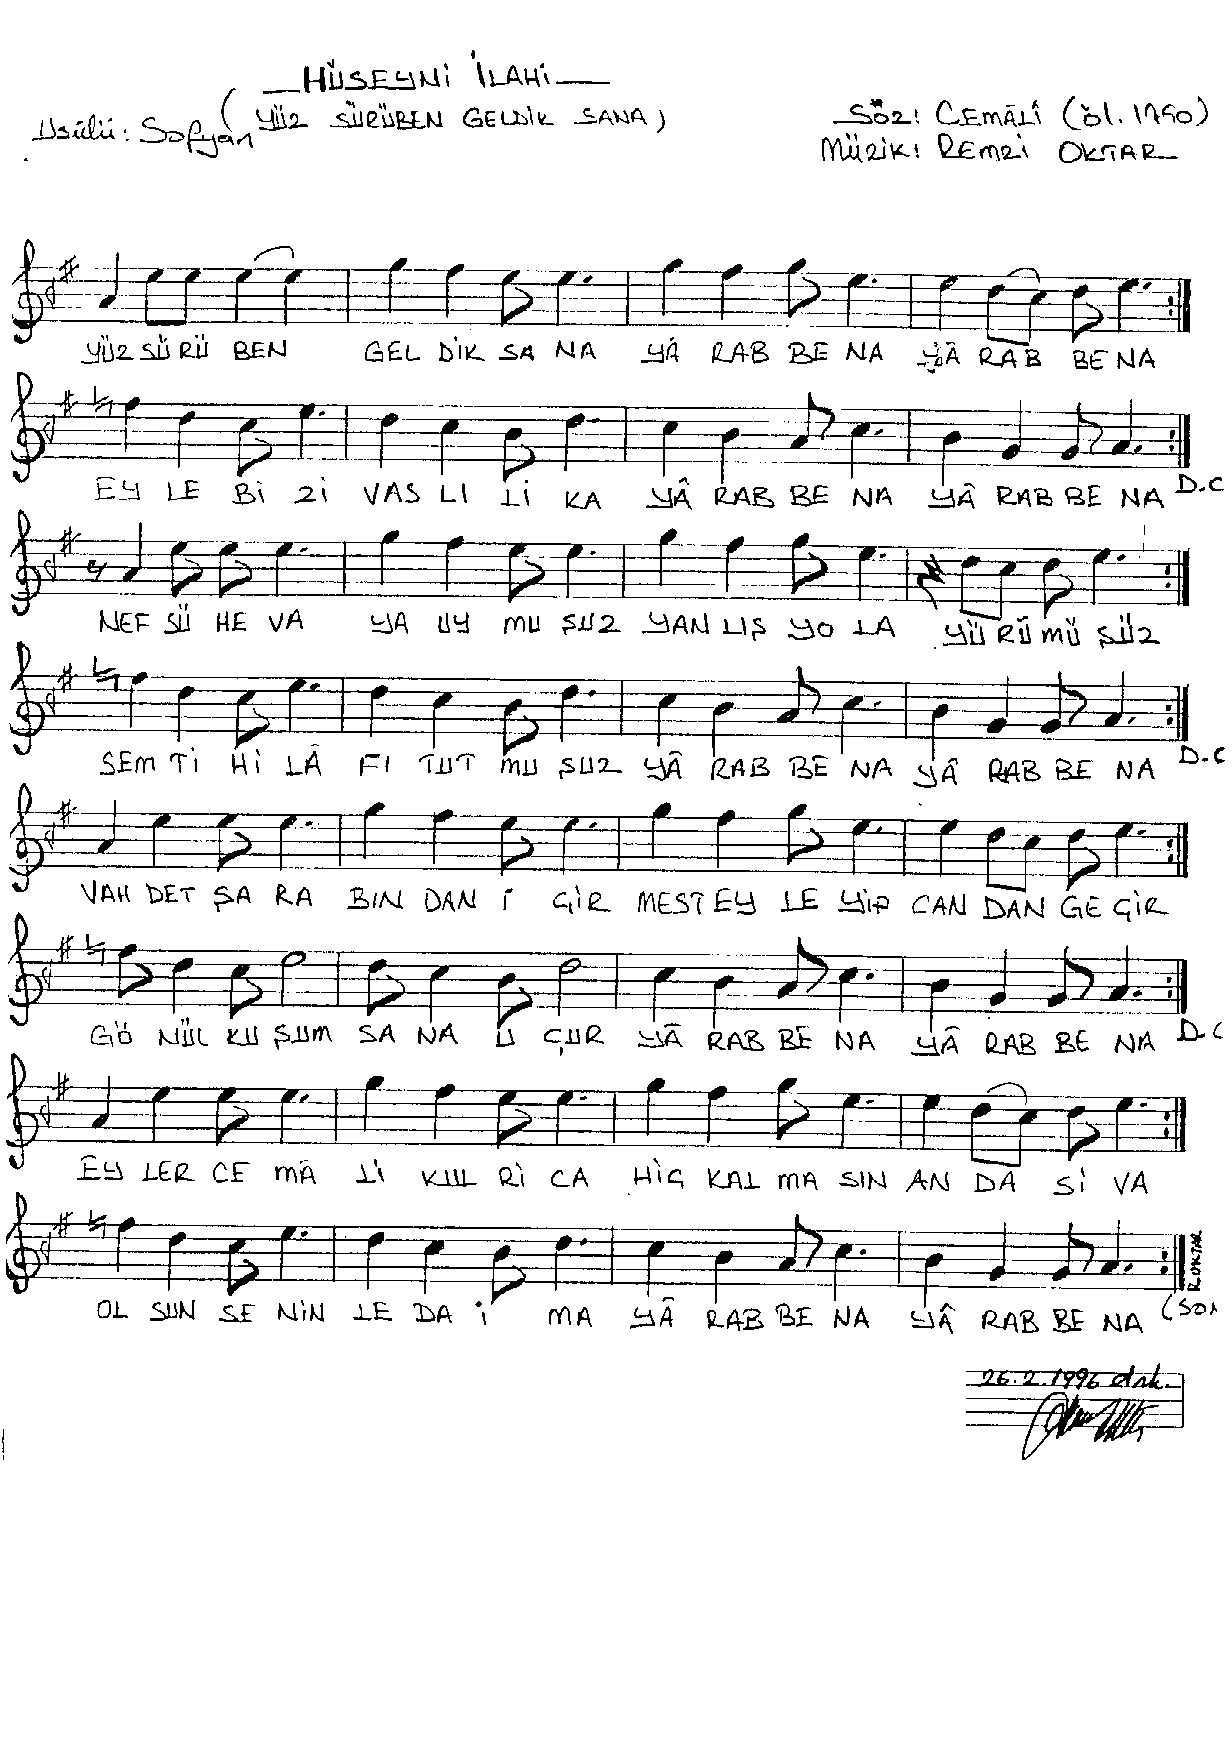 HÜSEYNİ İLAHİ
(YÜZ SÜRÜBEN GELDİK SANA)
Usûlü: Sofyan
SÖZ: CEMÂLÎ (öl. 1750)
MÜZİK: REMZİ OKTAR
YÜZ SÜ RÜ BEN GEL DİK SA NA YÂ RAB BE NA YÂ RAB BE NA
EY LE Bİ Zİ VAS LI Lİ KA YÂ RAB BE NA YÂ RAB BE NA D.C
NEF SÜ HE VA YA UY MU ŞUZ YAN LIŞ YO LA YÜ RÜ MÜ ŞÜZ
SEM Tİ Hİ LÂ FI TUT MU ŞUZ YÂ RAB BE NA YÂ RAB BE NA D.C
VAH DET ŞA RA BIN DAN İ ÇİR MEST EY LE YİP CAN DAN GE ÇİR
GÖ NÜL KU ŞUM SA NA U ÇUR YÂ RAB BE NA YÂ RAB BE NA D.C
EY LER CE MÂ Lİ KUL Rİ CA HİÇ KAL MA SIN AN DA Sİ VA
OL SUN SE NİN LE DA İ MA YÂ RAB BE NA YÂ RAB BE NA (SON
R.OKTAR
26.2.1996